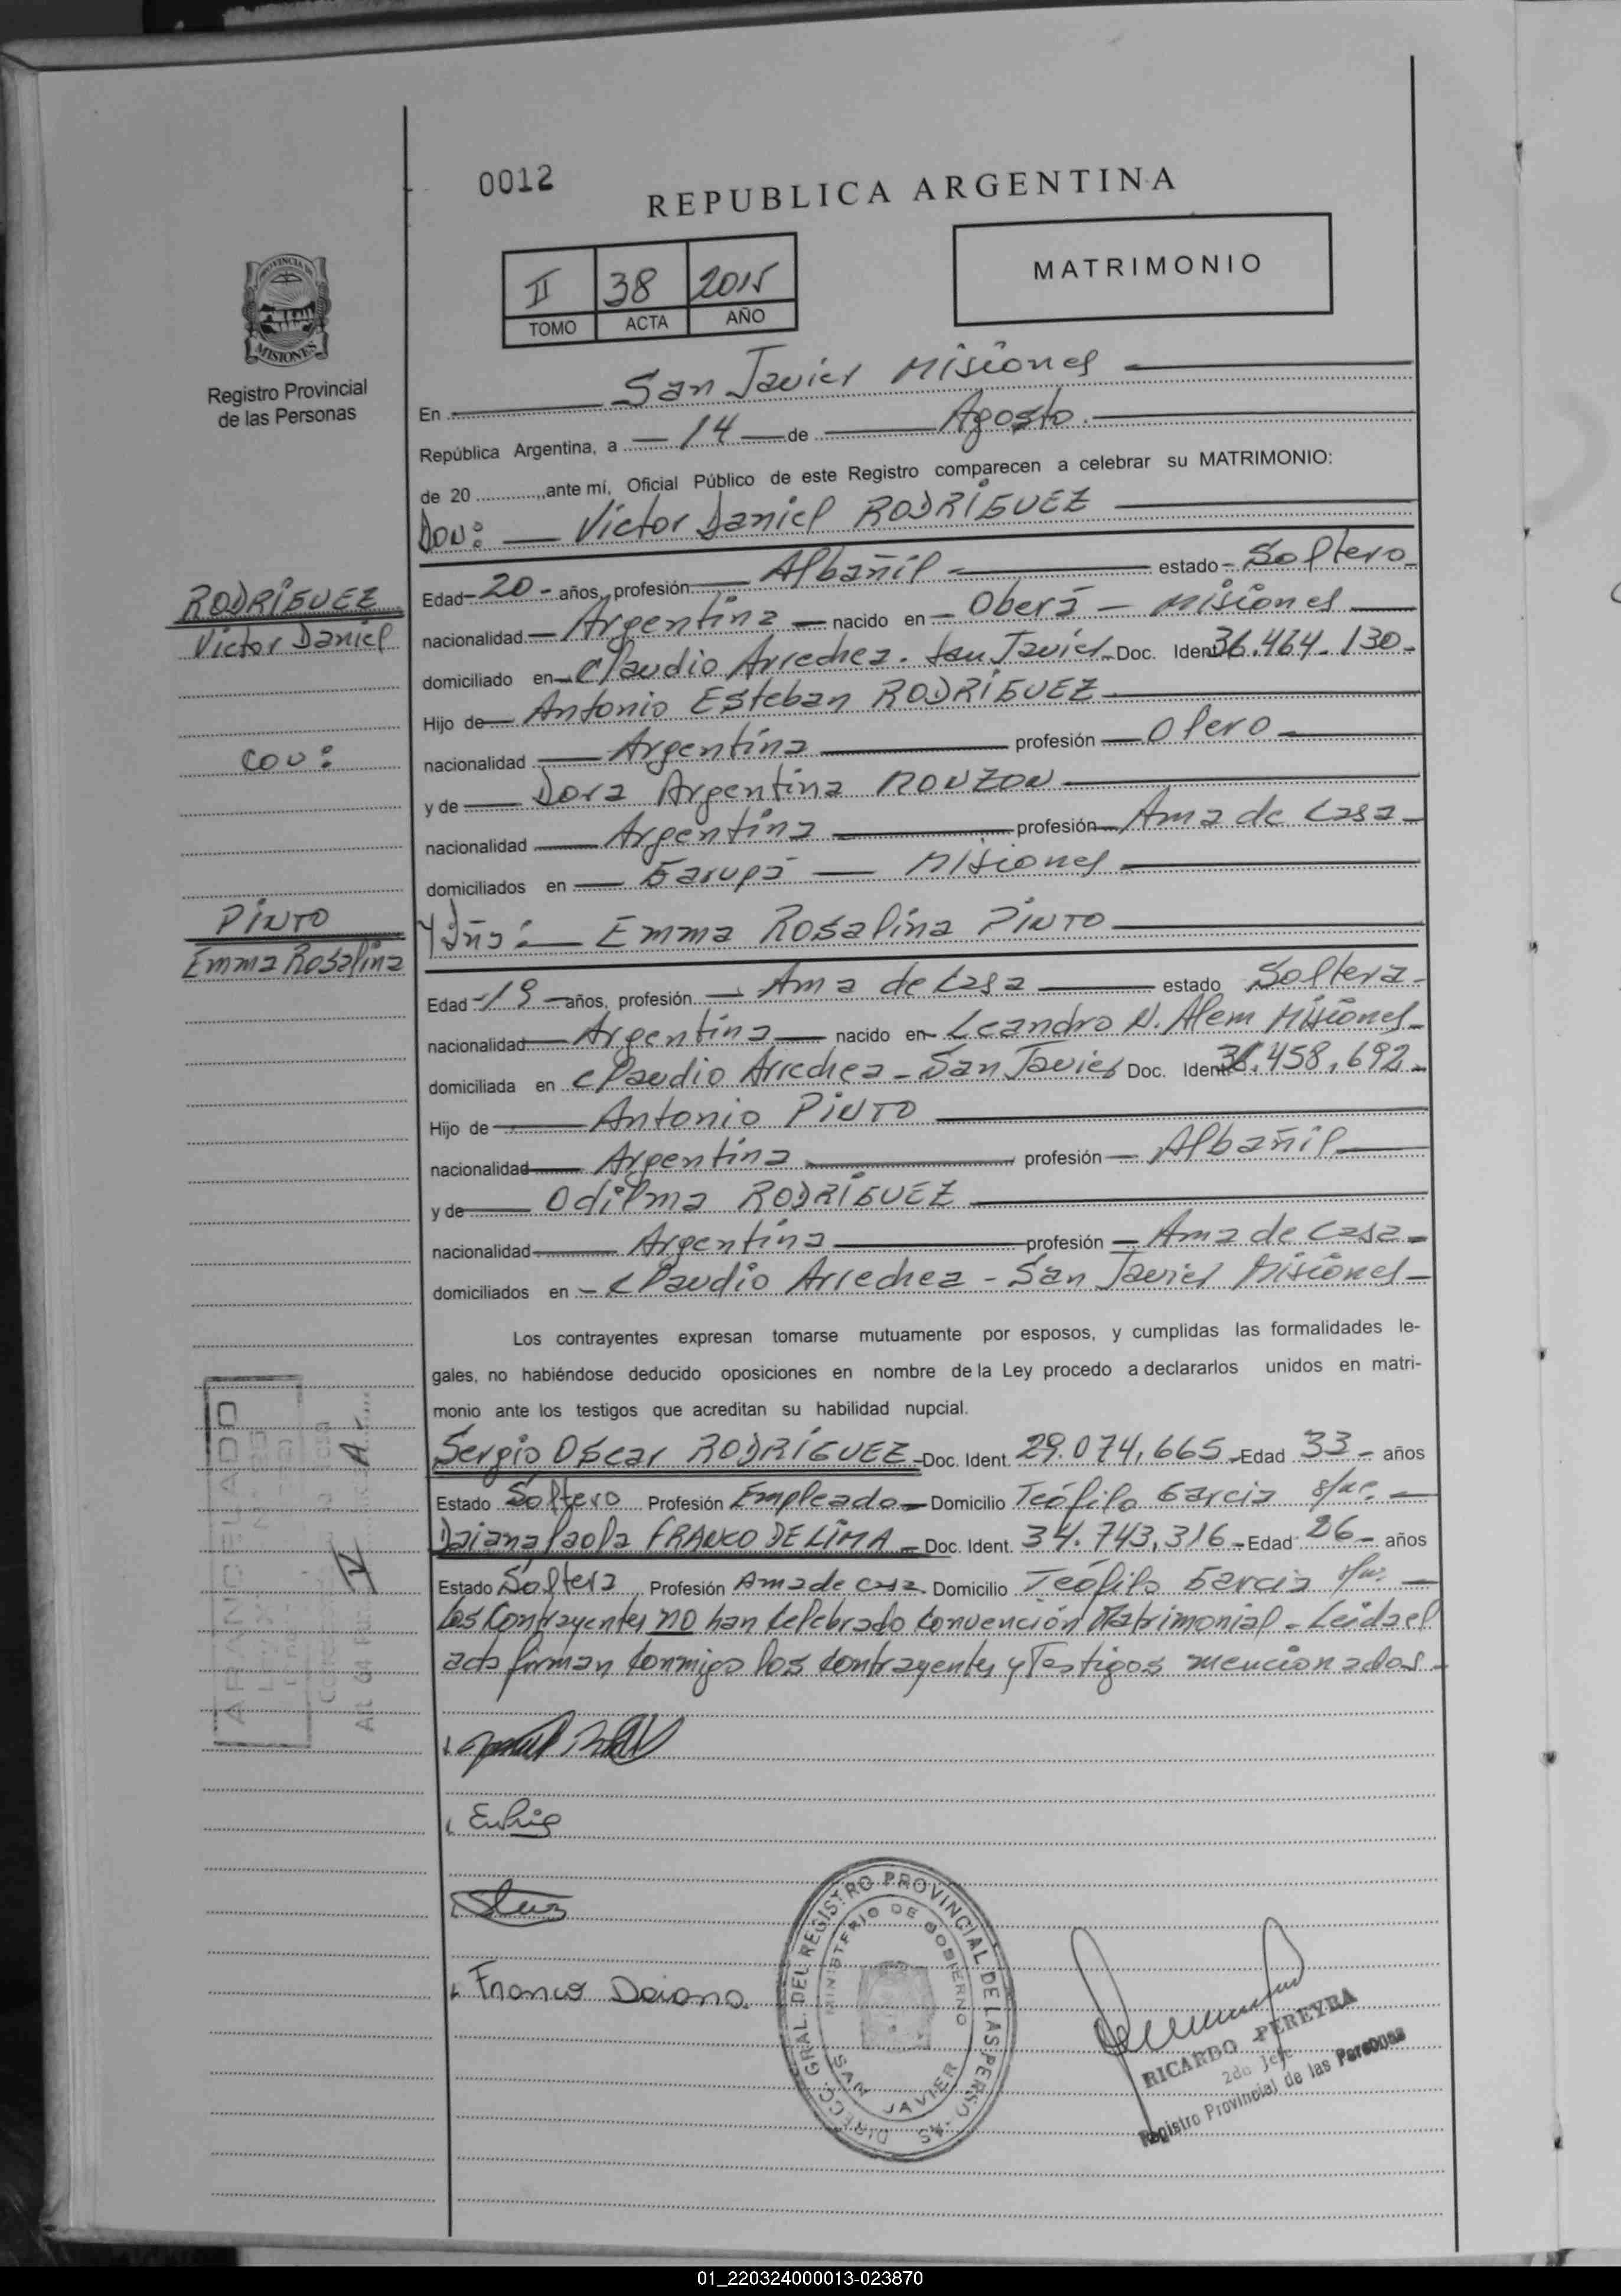 0012
REPUBLICA ARGENTINA
II 38 2015
TOMO ACTA AÑO
MATRIMONIO
PROVINCIA DE
MISIONES
Registro Provincial
de las Personas
En San Javier Misiones
República Argentina, a 14 de Agosto.
de 20 ............, ante mí, Oficial Público de este Registro comparecen a celebrar su MATRIMONIO:
Don: Víctor Daniel RODRÍGUEZ
RODRÍGUEZ
Víctor Daniel
Edad 20 años, profesión Albañil estado Soltero
nacionalidad Argentina nacido en Oberá - Misiones
domiciliado en Claudio Arrechea. San Javier Doc. Ident. 36.464.130
Hijo de Antonio Esteban RODRÍGUEZ
nacionalidad Argentina profesión Olero
con:
y de Dora Argentina MONZON
nacionalidad Argentina profesión Ama de Casa
domiciliados en Garupá - Misiones
PINTO
Emma Rosalina
Y Dña: Emma Rosalina PINTO
Edad 19 años, profesión Ama de Casa estado Soltera
nacionalidad Argentina nacido en Leandro N. Alem Misiones
domiciliada en Claudio Arrechea - San Javier Doc. Ident. .458.692
Hijo de Antonio PINTO
nacionalidad Argentina profesión Albañil
y de Odilma RODRÍGUEZ
nacionalidad Argentina profesión Ama de Casa
domiciliados en Claudio Arrechea - San Javier Misiones
Los contrayentes expresan tomarse mutuamente por esposos, y cumplidas las formalidades le-
gales, no habiéndose deducido oposiciones en nombre de la Ley procedo a declararlos unidos en matri-
monio ante los testigos que acreditan su habilidad nupcial.
Sergio Oscar RODRÍGUEZ Doc. Ident. 29.074.665 Edad 33 años
Estado Soltero Profesión Empleado Domicilio Teófilo Garcia s/nº.
Daiana Paola FRANCO DE LIMA Doc. Ident. 34.743.316 Edad 26 años
Estado Soltera Profesión Ama de casa Domicilio Teófilo Garcia s/nº.
Los Contrayentes NO han Celebrado Convención Matrimonial. Leida el
acta firman conmigo los contrayentes y Testigos mencionados.
ARANCELADO
Franco Daiana.
DIRECC. GRAL. DEL REGISTRO PROVINCIAL DE LAS PERSONAS
MINISTERIO DE GOBIERNO
SAN JAVIER
RICARDO PEREYRA
2do Jefe
Registro Provincial de las Personas
01_220324000013-023870